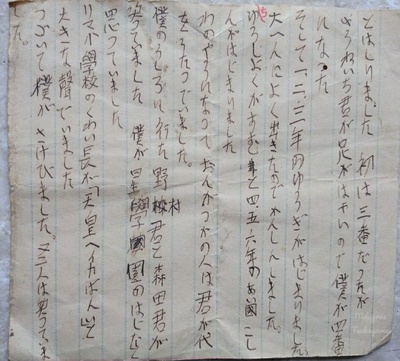 とはしりました 初は三番だったが
さうねいち君が足がはやいので僕が四番
になった
そして一、二、三年のゆうぎがはじまりました
大へんによく出きたのでかんしんしました。
ゆうぎもよくがすむと四五六年の
んがはじまりました
わのやうになって おんがつがの人は君が代
をうたっていました。
僕のうしろに行た野村君と森田君が
笑っていました 僕が四年
思っていました
リマが学校のくわい長が「天皇ヘイカばんざい」と
大きな聲でいました
つづいて僕がさけびました、二三人は
した。